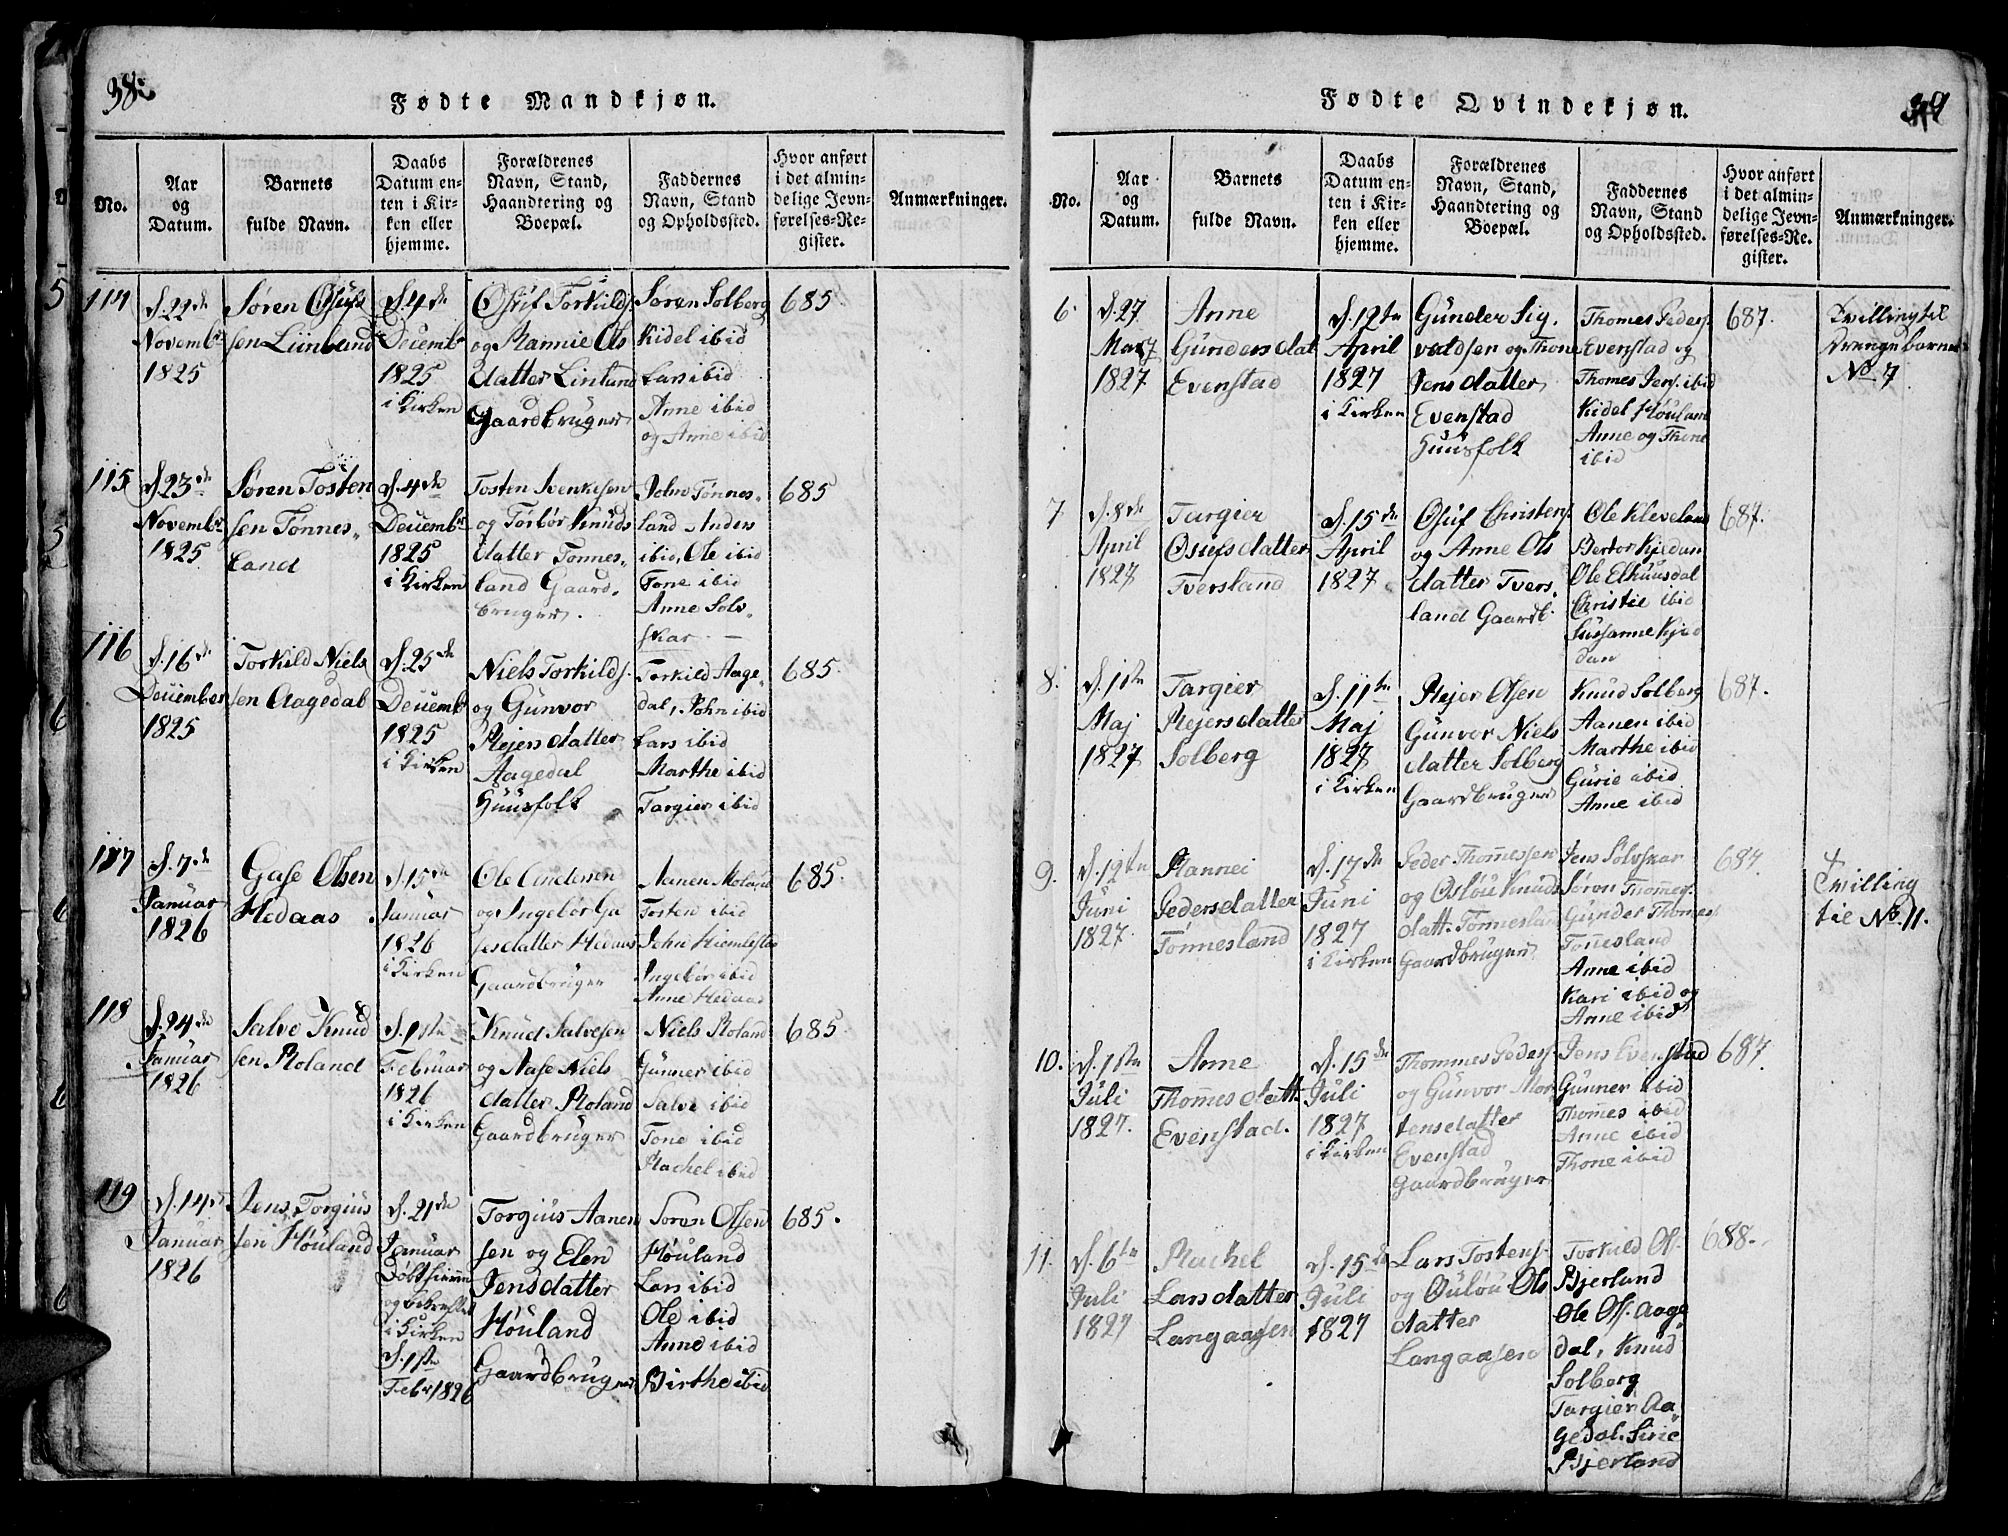 38.
Fødte Mandkjøn.
No.
Aar
og
Datum.
Barnets
fulde Navn.
Daabs
Datum en-
ten i Kir-
ken eller
hjemme.
Forældrenes
Navn, Stand,
Haandtering og
Boepæl.
Faddernes
Navn, Stand
og Opholdssted.
Hvor anført
i det almin-
delige Jevn-
førelses-Re-
gister.
Anmærkninger.
114
d. 22de
Novembr
1825
Søren Osufs
sen Liinland
d. 4de
Decembr
1825
i Kirken
Osuf Torkilds.
og Rannie Ols
datter Linland
Gaardbruger
Søren Solberg
Kidel ibid
Lars ibid
Anne ibid
og Anne ibid
685.
115
d. 23de
Novembr
1825
Søren Tosten
sen Tønnes-
land
d. 4de
Decembr
1825
i Kirken
Tosten Svenkesen
og Torbør Knuds
datter Tønnes-
land Gaard-
bruger.
John Tønnes-
land, Anders
ibid, Ole ibid
Tone ibid
Anne Solv-
skar
685
116
d. 16de
December
1825
Torkild Niels
sen Aagedal
d. 25de
Decembr
1825
i Kirken
Niels Torkilds.
og Gunvor
Rejersdatter
Aagedal
Huusfolk
Torkild Aage-
dal, John ibid
Lars ibid
Marthe ibid
Targier ibid
685.
117
d. 7de
Januar
1826
Gase Olsen
Hedaas
d. 15de
Januar
1826
i Kirken
Ole Andersen
og Ingebør Ga
sesdatter Hedaas
Gaardbruger
Aanen Moland
Tosten ibid
John Hiemlestøe
Ingebør ibid
Anne Hedaas
685.
118
d. 24de
Januar
1826
Salve Knud
sen Roland
d. 1ste
Februar
1826
i Kirken
Knud Salvesen
og Aase Niels
datter Roland
Gaardbruger
Niels Roland
Gunner ibid
Salve ibid
Tone ibid
Rachel ibid
685.
119
d. 14de
Januar
1826
Jens Torgius
sen Høuland
d. 21de
Januar
Døbt hiemme
og bekræftet
i Kirken
d. 1ste
Febr 1826
Torgius Aanen
sen og Elen
Jensdatter
Høuland
Gaardbruger
Søren Olsen
Høuland
Lars ibid
Ole ibid
Anne ibid
Birthe ibid
685.
39
Fødte Qvindekjøn.
No.
Aar
og
Datum.
Barnets
fulde Navn.
Daabs
Datum en-
ten i Kir-
ken eller
hjemme.
Forældrenes
Navn, Stand,
Haandtering og
Boepæl.
Faddernes
Navn, Stand
og Opholdssted.
Hvor anført
i det almin-
delige Jevn-
førelses-Re-
gister.
Anmærkninger.
6.
d. 27
1827
Anne
Gundersdat
Evenstad
d. 12te
April
1827
i Kirken
Gunder Sig.
valdsen og Thone
Jensdatter
Evenstad
Huusfolk
Thomes Peders.
Evenstad og
Thomes Jens. ibid
Kidel Høuland
Anne og Thone
ibid
687.
Tvilling til
Drengebarnet
No 7
7
d. 8de
April
1827
Targier
Osufsdatter
Tversland
d. 15de
April
1827
Osuf Christens.
og Anne Ols
datter Tvers-
land Gaardb.
Ole Kleveland
Bertor Kjedan
Ole Elhuusdal
Christie ibid
Sussanne Kjed
dan
687.
8.
d. 1ste
Maj
1827
Targier
Rejersdatter
Solberg
d. 11te
Maj
1827
i Kirken
Rejer Olsen
Gunvor Niels
datter Solberg
Gaardbruger
Knud Solberg
Aanen ibid
Marthe ibid
Gurie ibid
Anne ibid
687.
9.
d. 12te
Juni
1827
Rannei
Pedersdatter
Tønnesland
d. 17de
Juni
1827
i Kirken
Peder Thommessen
og Oslou Knuds
datt. Tønnesland
Gaardbruger
Jens Solvskar
Søren Thomes.
Gunder Thomes.
Tønnesland
Anne ibid
Kari ibid og
Anne ibid
687.
Tvilling
til No. 11.
10.
d. 1ste
Juli
1827.
Anne
Thomesdatt.
Evenstad.
d. 15de
Juli
1827
i Kirken
Thommes Peders.
og Gunvor Mor
tensdatter
Evenstad
Gaardbruger
Jens Evenstad
Gunner ibid
Thomes ibid
Anne ibid
Thone ibid
687.
11.
d. 6te
Juli
1827
Rachel
Larsdatter
Langaasen
d. 15de
Juli
1827
Lars Tostens.
og Oulou Ols
datter
Langaasen
Torkild Ols.
Bjerland
Ole Ols. Aage
dal, Knud
Solberg
Targier Aa
gedal. Sirie
Bjerland
688.